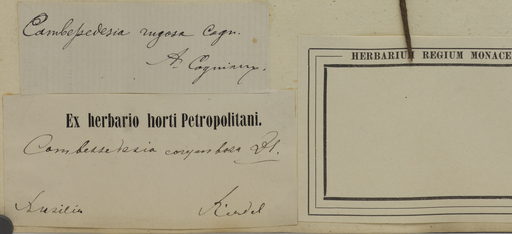 Cambessedesia rugosa Cogn.
A. Cogniaux.
HERBARIUM REGIUM MONACE
Ex herbario horti Petropolitani.
Cambessedesia corymbosa DC.
Brasilia Riedel